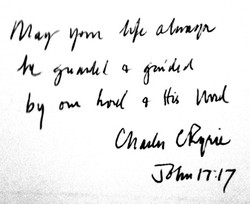 May your life always
be guarded & guided
by our Lord & His Word
Charles C Ryrie
John 17:17